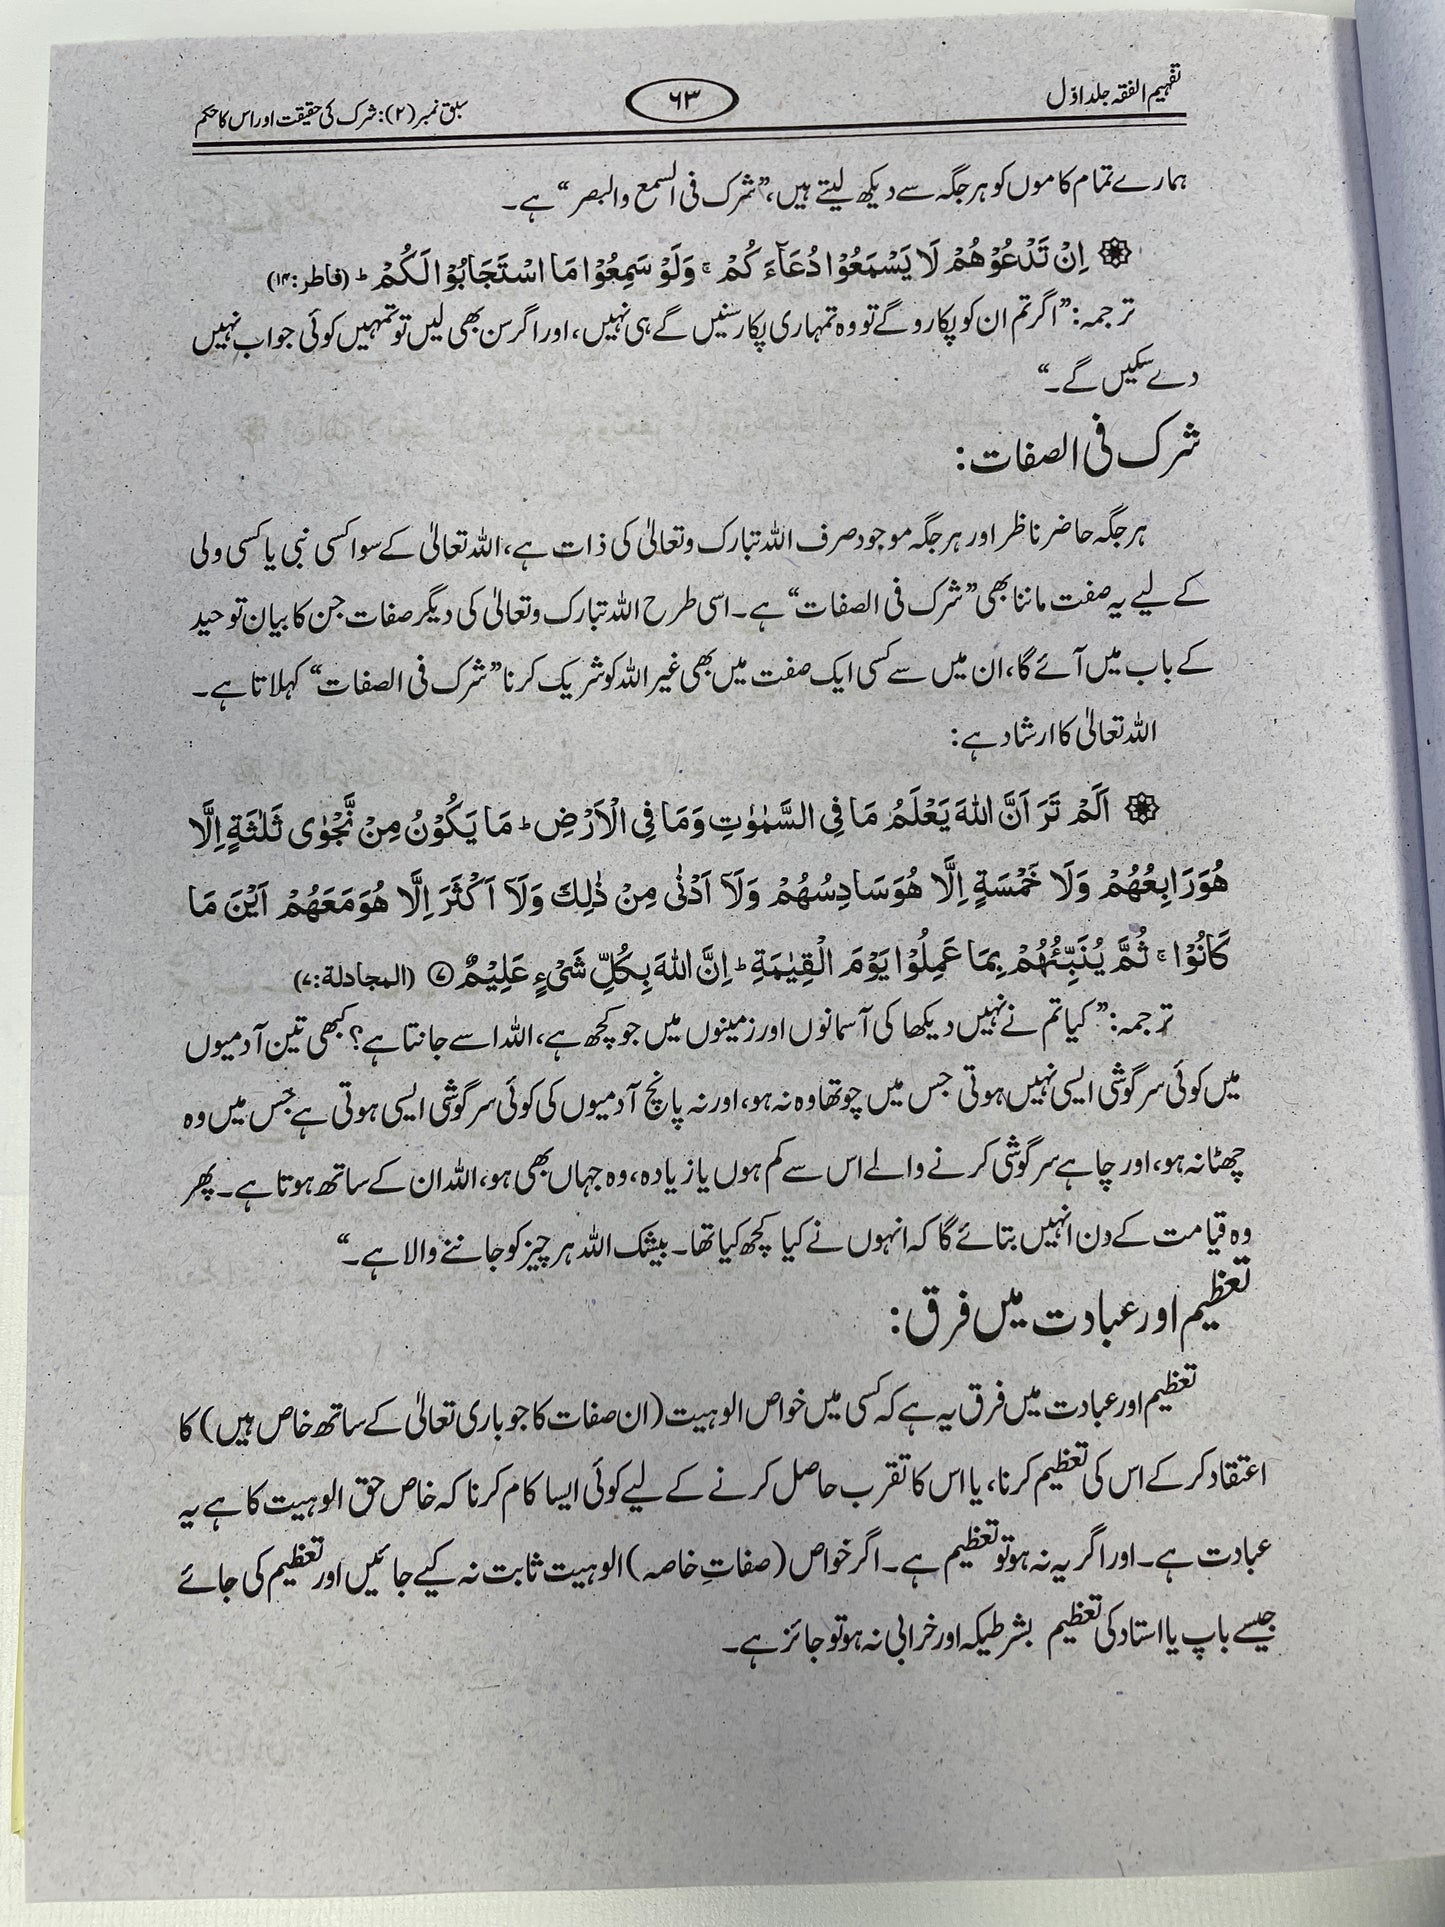 تفہیم الفقہ جلد اوّل
۶۳
سبق نمبر (۲): شرک کی حقیقت اور اس کا حکم
ہمارے تمام کاموں کو ہر جگہ سے دیکھ لیتے ہیں، ”شرک فی السمع والبصر“ ہے۔
اِنْ تَدْعُوْهُمْ لَا يَسْمَعُوْا دُعَآءَكُمْ ۚ وَلَوْ سَمِعُوْا مَا اسْتَجَابُوْا لَكُمْ ؕ (فاطر:۱۴)
ترجمہ: ”اگر تم ان کو پکارو گے تو وہ تمہاری پکار سنیں گے ہی نہیں، اور اگر سن بھی لیں تو تمہیں کوئی جواب نہیں
دے سکیں گے۔“
شرک فی الصفات:
ہر جگہ حاضر ناظر اور ہر جگہ موجود صرف اللہ تبارک وتعالیٰ کی ذات ہے، اللہ تعالیٰ کے سوا کسی نبی یا کسی ولی
کے لیے یہ صفت ماننا بھی ”شرک فی الصفات“ ہے۔ اسی طرح اللہ تبارک وتعالیٰ کی دیگر صفات جن کا بیان توحید
کے باب میں آئے گا، ان میں سے کسی ایک صفت میں بھی غیر اللہ کو شریک کرنا ”شرک فی الصفات“ کہلاتا ہے۔
اللہ تعالیٰ کا ارشاد ہے:
اَلَمْ تَرَ اَنَّ اللّٰهَ يَعْلَمُ مَا فِي السَّمٰوٰتِ وَمَا فِي الْاَرْضِ ؕ مَا يَكُوْنُ مِنْ نَّجْوٰى ثَلٰثَةٍ اِلَّا
هُوَ رَابِعُهُمْ وَلَا خَمْسَةٍ اِلَّا هُوَ سَادِسُهُمْ وَلَآ اَدْنٰى مِنْ ذٰلِكَ وَلَآ اَكْثَرَ اِلَّا هُوَ مَعَهُمْ اَيْنَ مَا
كَانُوْا ۚ ثُمَّ يُنَبِّئُهُمْ بِمَا عَمِلُوْا يَوْمَ الْقِيٰمَةِ ؕ اِنَّ اللّٰهَ بِكُلِّ شَيْءٍ عَلِيْمٌ ۝۷ (المجادلة:۷)
ترجمہ: ”کیا تم نے نہیں دیکھا کی آسمانوں اور زمینوں میں جو کچھ ہے، اللہ اسے جانتا ہے؟ کبھی تین آدمیوں
میں کوئی سرگوشی ایسی نہیں ہوتی جس میں چوتھا وہ نہ ہو، اور نہ پانچ آدمیوں کی کوئی سرگوشی ایسی ہوتی ہے جس میں وہ
چھٹا نہ ہو، اور چاہے سرگوشی کرنے والے اس سے کم ہوں یا زیادہ، وہ جہاں بھی ہو، اللہ ان کے ساتھ ہوتا ہے۔ پھر
وہ قیامت کے دن انہیں بتائے گا کہ انہوں نے کیا کچھ کیا تھا۔ بیشک اللہ ہر چیز کو جاننے والا ہے۔“
تعظیم اور عبادت میں فرق:
تعظیم اور عبادت میں فرق یہ ہے کہ کسی میں خواص الوہیت (ان صفات کا جو باری تعالیٰ کے ساتھ خاص ہیں) کا
اعتقاد کر کے اس کی تعظیم کرنا، یا اس کا تقرب حاصل کرنے کے لیے کوئی ایسا کام کرنا کہ خاص حق الوہیت کا ہے یہ
عبادت ہے۔ اور اگر یہ نہ ہو تو تعظیم ہے۔ اگر خواص (صفاتِ خاصہ) الوہیت ثابت نہ کیے جائیں اور تعظیم کی جائے
جیسے باپ یا استاد کی تعظیم بشرطیکہ اور خرابی نہ ہو تو جائز ہے۔